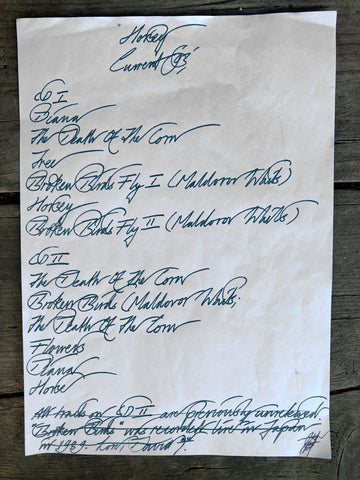 Horsey
Current 93
CD I
Diana
The Death Of The Corn
Tree
Broken Birds Fly I (Maldoror Waits)
Horsey
Broken Birds Fly II (Maldoror Whells)
CD II
The Death Of The Corn
Broken Birds (Maldoror Waits)
The Death Of The Corn
Flowers
Diana
Horse
All tracks on CD II are previously unreleased
"Broken Birds" was recorded live in Japan
in 1989. Love, David